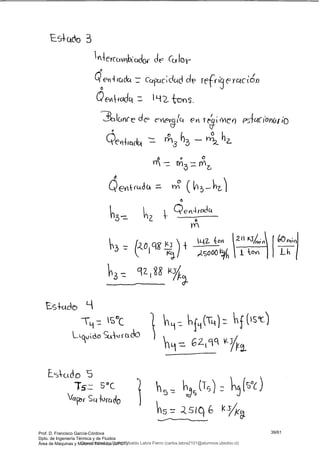 Estado 3
Intercambiador de Calor
Q̇entrada = Capacidad de refrigeración
Q̇entrada = 142 tons.
Balance de energía en régimen estacionario
Q̇entrada = ṁ3 h3 - ṁ2 h2
ṁ = ṁ3 = ṁ2
Q̇entrada = ṁ (h3 - h2)
h3 = h2 + Q̇entrada / ṁ
h3 = (20,98 KJ/Kg) + 142 ton / 25000 Kg/h | 211 KJ/min / 1 ton | 60 min / 1 h
h3 = 92,88 KJ/Kg
Estado 4
T4 = 15°C
Líquido Saturado
h4 = hf4 (T4) = hf (15°C)
h4 = 62,99 KJ/Kg
Estado 5
T5 = 5°C
Vapor Saturado
h5 = hg5 (T5) = hg (5°C)
h5 = 2510,6 KJ/Kg
Prof. D. Francisco García-Córdova
Dpto. de Ingeniería Térmica y de Fluidos
Área de Máquinas y Motores Térmicos (UPCT)
39/81